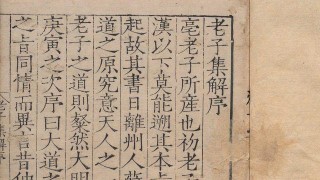 老子集解序
亳老子所産也初老子
漢以下莫能遡其本
起故其書日離州人
道之原究意天人之
老子之道則粲然大明
庚寅之次序曰大道
之旨同情而異言昔仲
老子集解序